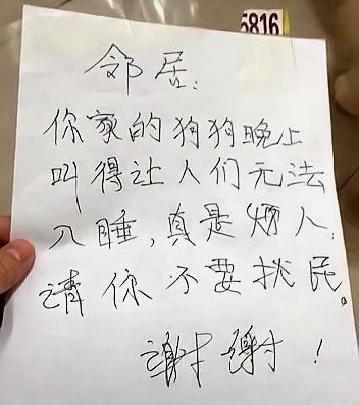 5816
邻居:
你家的狗狗晚上
叫得让人们无法
入睡,真是烦人.
请你不要扰民。
谢谢!